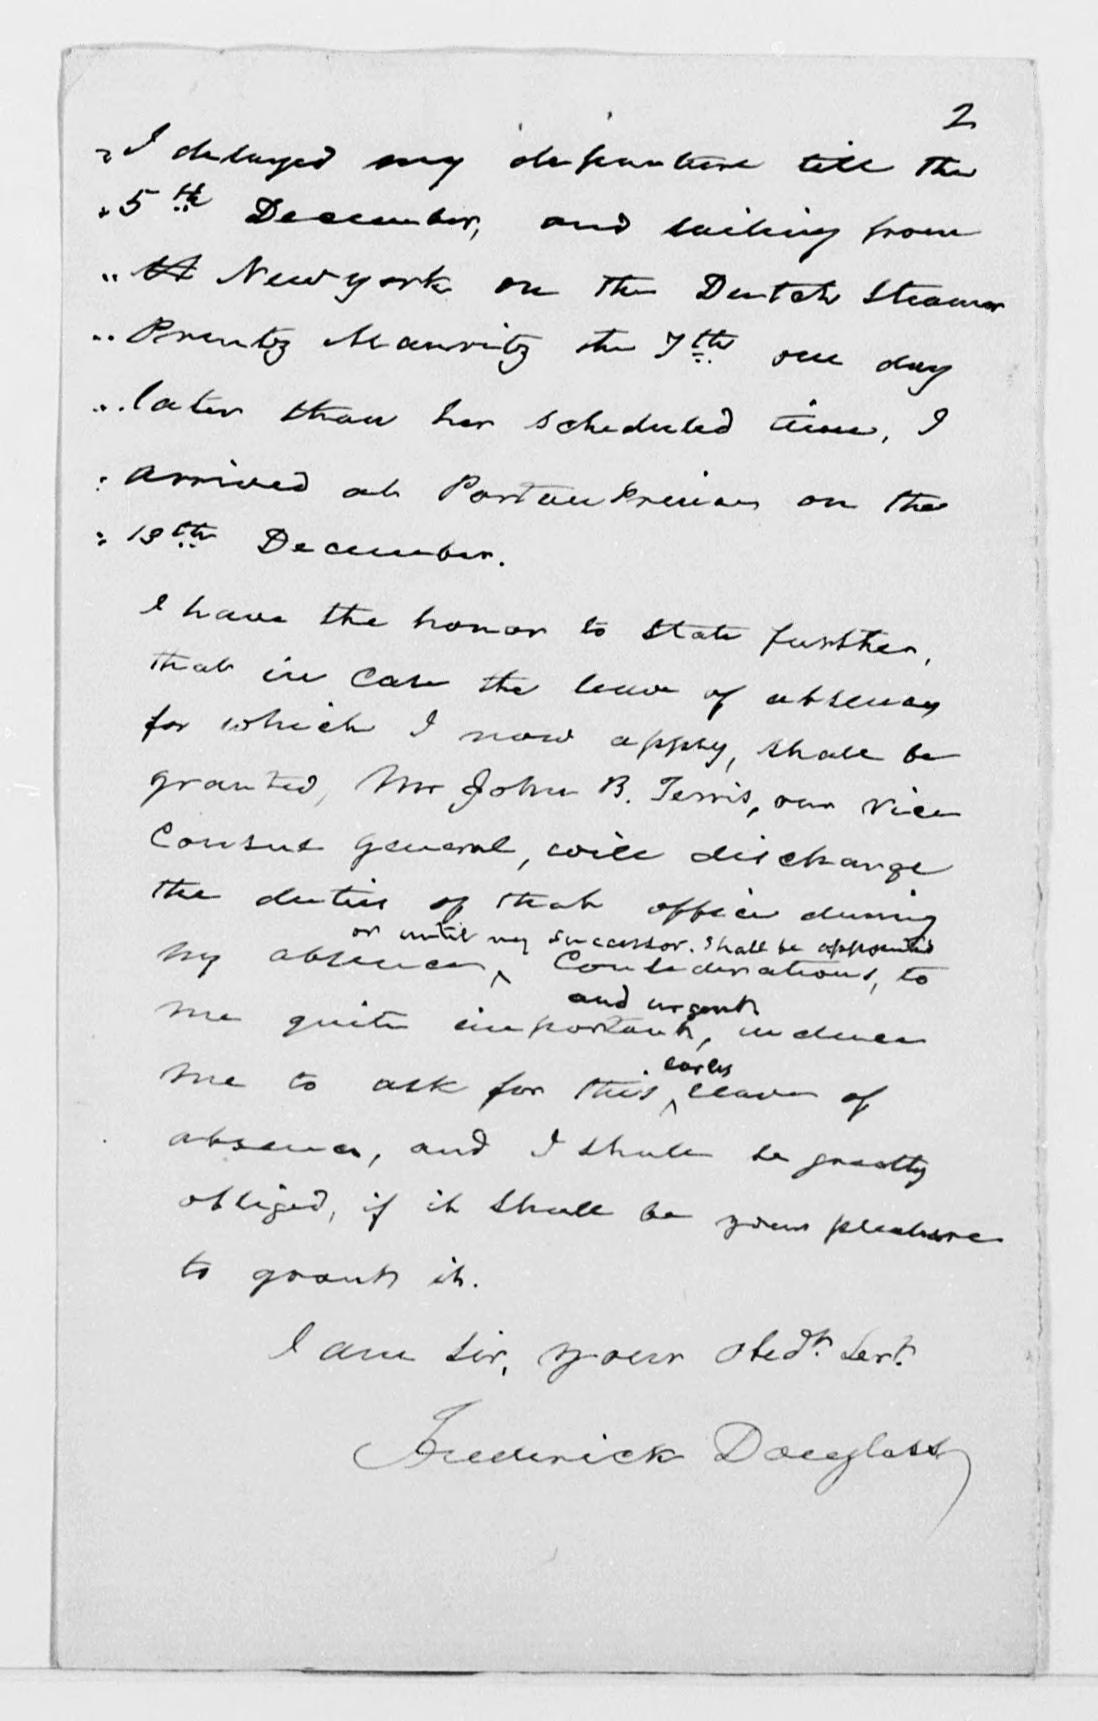 2
"I delayed my departure till the
" 5th December, and sailing from
" New york on the Dutch Steamer
" Prentz Mauritz the 7th one day
" later than her scheduled time, I
" arrived at Port au Prince on the
" 13th December.
I have the honor to state further,
that in case the leave of absence
for which I now apply, shall be
granted, Mr John B. Terris, our Vice
Consul General, will discharge
the duties of that office during
or until my successor. shall be appointed
my absence, ^ Considerations, to
and urgent
me quite important, induce
early
me to ask for this ^ leave of
absence, and I shall be greatly
obliged, if it shall be your pleasure
to grant it.
I am Sir, your Obedt. Sert.
Frederick Douglass